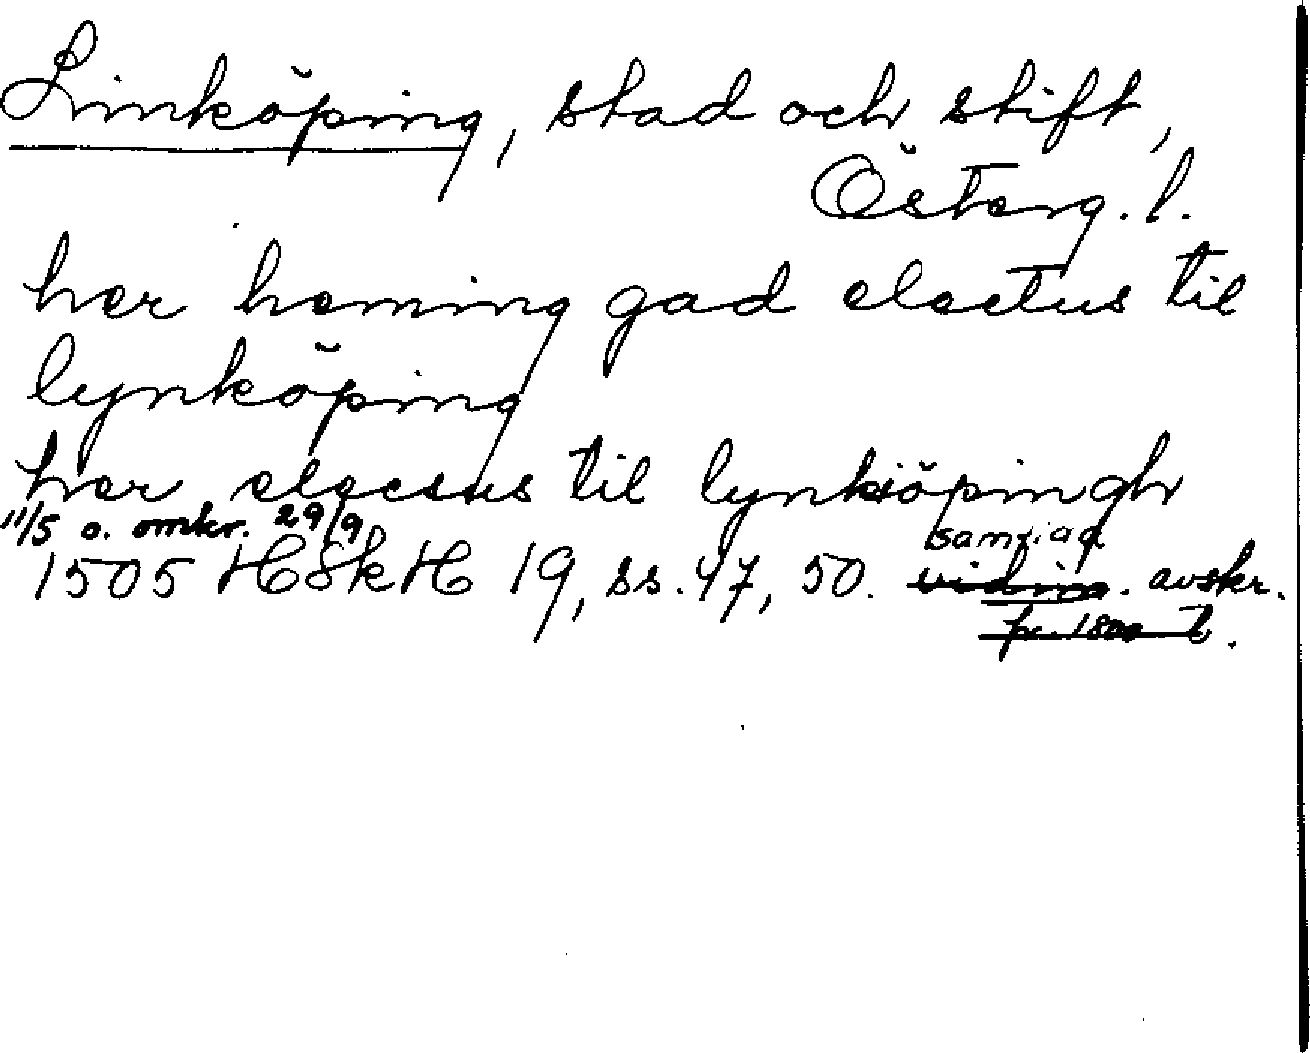 Linköping, stad och stift,
Österg. l.
her heming gad electus til
lynköping
her elecsus til lynkiöpingh
11/5 o. omkr. 29/9
samtida
1505 HSkH 19, ss. 47, 50. vidim. avskr.
fr. 1800 t.